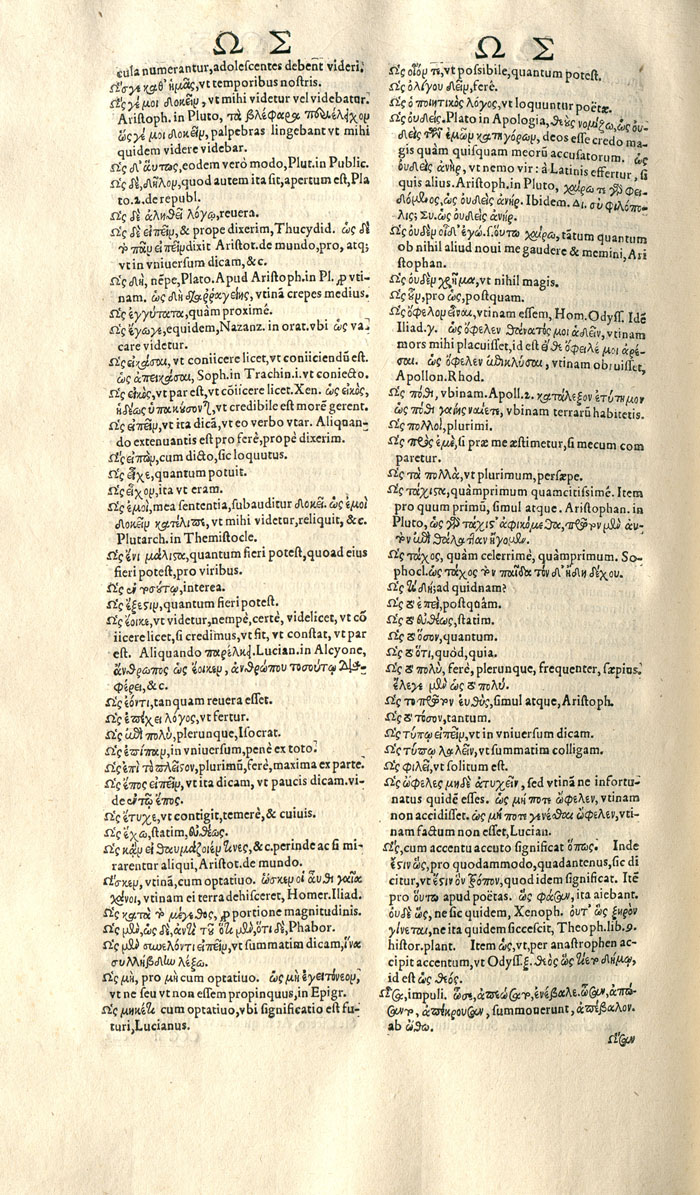 Ω Σ
cula numerantur, adolescentes debent videri.
Ὥσγε καθ' ἡμᾶς, vt temporibus nostris.
Ὥς γέ μοι δοκεῖν, vt mihi videtur vel videbatur.
Aristoph. in Pluto, τὰ βλέφαρα
ὥς γέ μοι δοκεῖν, palpebras lingebant vt mihi
quidem videre videbar.
Ὡς δ' αὕτως, eodem verò modo, Plut. in Public.
Ὡς δὲ, δῆλον, quod autem ita sit, apertum est, Pla
to. 2. de republ.
Ὡς δὲ ἀληθεῖ λόγῳ, reuera.
Ὡς δὲ εἰπεῖν, & propè dixerim, Thucydid. ὡς δὲ
τὸ πᾶν εἰπεῖν dixit Aristot. de mundo, pro, atq;
vt in vniuersum dicam, & c.
Ὡς δὴ, nẽpe, Plato. Apud Aristoph. in Pl. p vti-
nam. ὡς δὴ διαῤῥαγείης, vtinã crepes medius.
Ὡς ἐγγύτατα, quàm proximè.
Ὡς ἔγωγε, equidem, Nazanz. in orat. vbi ὡς va-
care videtur.
Ὡς εἰκάσαι, vt coniicere licet, vt coniiciendũ est.
ὡς ἀπεικάσαι, Soph. in Trachin. i. vt coniecto.
Ὡς εἰκὸς, vt par est, vt cõiicere licet. Xen. ὡς εἰκὸς,
ἡδέως ὑπακούσονται, vt credibile est morẽ gerent.
Ὡς εἰπεῖν, vt ita dicã, vt eo verbo vtar. Aliquan-
do extenuantis est pro ferè, propè dixerim.
Ὡς εἰπὼν, cum dicto, sic loquutus.
Ὡς εἶχε, quantum potuit.
Ὡς εἶχον, ita vt eram.
Ὡς ἐμοὶ, mea sententia, subauditur δοκεῖ. ὡς ἐμοὶ
δοκεῖν κατέλιπε, vt mihi videtur, reliquit, & c.
Plutarch. in Themistocle.
Ὡς ἔνι μάλιστα, quantum fieri potest, quoad eius
fieri potest, pro viribus.
Ὡς ἐν τούτῳ, interea.
Ὡς ἔξεστιν, quantum fieri potest.
Ὡς ἔοικε, vt videtur, nempè, certè, videlicet, vt cõ
iicere licet, si credimus, vt fit, vt constat, vt par
est. Aliquando παρέλκει. Lucian. in Alcyone,
ἄνθρωπος ὡς ἔοικεν, ἀνθρώπου τοσούτῳ δια-
φέρει, & c.
Ὡς ἐόντι, tanquam reuera esset.
Ὡς ἐπέχει λόγος, vt fertur.
Ὡς ἐπὶ πολὺ, plerunque, Isocrat.
Ὡς ἐπίπαν, in vniuersum, penè ex toto.
Ὡς ἐπὶ τὸ πλεῖστον, plurimũ, ferè, maxima ex parte.
Ὡς ἔπος εἰπεῖν, vt ita dicam, vt paucis dicam. vi-
de ἐν τῷ ἔπος.
Ὡς ἔτυχε, vt contigit, temerè, & cuiuis.
Ὡς ἔχω, statim, εὐθέως.
Ὡς κἂν εἰ θαυμάζοιέν τινες, & c. perinde ac si mi-
rarentur aliqui, Aristot. de mundo.
Ὥσκεν, vtinã, cum optatiuo. ὥσκεν οἱ αὖθι γαῖα
χάνοι, vtinam ei terra dehisceret, Homer. Iliad.
Ὡς κατὰ τὸ μέγεθος, p portione magnitudinis.
Ὡς μὲν, ὡς δὲ, ἀντὶ τοῦ ὅτι μὲν, ὅτι δὲ, Phabor.
Ὡς μὲν συνελόντι εἰπεῖν, vt summatim dicam, ἵνα
συλλήβδην λέξω.
Ὡς μὴ, pro μὴ cum optatiuo. ὡς μὴ ἐγειτόνεον,
vt ne seu vt non essem propinquus, in Epigr.
Ὡς μηκέτι cum optatiuo, vbi significatio est fu-
turi, Lucianus.
Ω Σ
Ὡς οἷόν τε, vt possibile, quantum potest.
Ὡς ὀλίγου δεῖν, ferè.
Ὡς ὁ ποιητικὸς λόγος, vt loquuntur poëtæ.
Ὡς οὐδείς. Plato in Apologia, θεὺς νομίζω, ὡς οὐ-
δεὶς τῶν ἐμῶν κατηγόρων, deos esse credo ma-
gis quàm quisquam meorũ accusatorum. ὡς
οὐδεὶς ἀνὴρ, vt nemo vir: à Latinis effertur, si
quis alius. Aristoph. in Pluto, χαίρω τι γὰρ φει-
δόμενος, ὡς οὐδεὶς ἀνὴρ. Ibidem. Δι. σὺ φιλόπο-
λις; Συ. ὡς οὐδεὶς ἀνὴρ.
Ὡς οὐδὲν οἶδ' ἐγώ. s. οὕτω χαίρω, tãtum quantum
ob nihil aliud noui me gaudere & memini, Ari
stophan.
Ὡς οὐδὲν χρῆμα, vt nihil magis.
Ὡς οὖν, pro ὡς, postquam.
Ὡς ὄφελον εἶναι, vtinam essem, Hom. Odyss. Idẽ
Iliad. γ. ὡς ὄφελεν θάνατός μοι ἁδεῖν, vtinam
mors mihi placuisset, id est εἴθε ὄφειλέ μοι ἀρέ-
σαι. ὡς ὄφελεν ἐπικλύσαι, vtinam obruisset,
Apollon. Rhod.
Ὡς πόθι, vbinam. Apoll. 2. κατάλεξον ἐτήτυμον
ὡς πόθι γαίης ναίετε, vbinam terrarũ habitetis.
Ὡς πολλοὶ, plurimi.
Ὡς πρὸς ἐμὲ, si præ me æstimetur, si mecum com
paretur.
Ὡς τὰ πολλὰ, vt plurimum, persæpe.
Ὡς τάχιστα, quàmprimum quamcitissimè. Item
pro quum primũ, simul atque. Aristophan. in
Pluto, ὡς γὰρ τάχιστ' ἀφικόμεθα, πρῶτον μὲν αὐ-
τὸν ἐπὶ θάλατταν ἤγομεν.
Ὡς τάχος, quàm celerrimè, quàmprimum. So-
phocl. ὡς τάχος τὸν παῖδα τόνδ' ἤδη δέχου.
Ὡς τί δή; ad quidnam?
Ὡς τὸ ἐπεὶ, postquàm.
Ὡς τὸ εὐθέως, statim.
Ὡς τὸ ὅσον, quantum.
Ὡς τὸ ὅτι, quòd, quia.
Ὡς τὸ πολὺ, ferè, plerunque, frequenter, sæpius.
ἔλεγε μὲν ὡς τὸ πολύ.
Ὡς τὸ πρῶτον εὐθὺς, simul atque, Aristoph.
Ὡς τὸ τόσον, tantum.
Ὡς τύπῳ εἰπεῖν, vt in vniuersum dicam.
Ὡς τύπῳ λαλεῖν, vt summatim colligam.
Ὡς φιλεῖ, vt solitum est.
Ὡς ὤφελες μηδὲ ἀτυχεῖν, sed vtinã ne infortu-
natus quidẽ esses. ὡς μή ποτε ὤφελεν, vtinam
non accidisset. ὡς μή ποτε γενέσθαι ὤφελεν, vti-
nam factum non esset, Lucian.
Ὥς, cum accentu accuto significat ὅπως. Inde
ἔστιν ὥς, pro quodammodo, quadantenus, sic di
citur, vt ἔστιν ὃν τρόπον, quod idem significat. Itẽ
pro οὕτω apud poëtas. ὣς φάσαν, ita aiebant.
οὐδὲ ὣς, ne sic quidem, Xenoph. οὔτ' ὣς ξηρὸν
γίνεται, ne ita quidem siccescit, Theoph. lib. 9.
histor. plant. Item ὣς, vt, per anastrophen ac-
cipit accentum, vt Odyss. ξ. θεὸς ὣς τίετο δήμῳ,
id est ὡς θεός.
Ὦσα, impuli. ὦσε, ἀπέωσεν, ἐνέβαλε. ὦσαν, ἀπώ-
σαντο, ἀπέκρουσαν, summouerunt, ἀπέβαλον.
ab ὠθῶ.
Ὦσαν